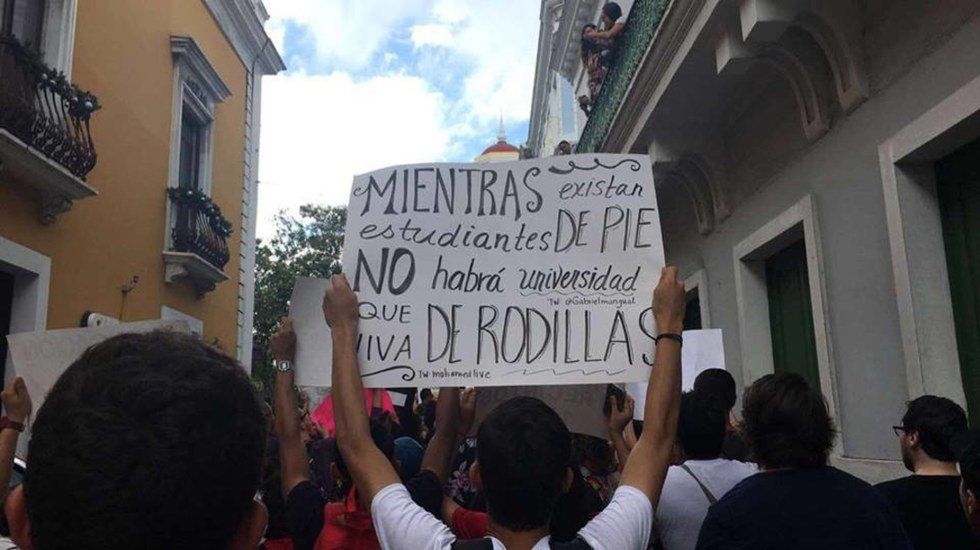 MIENTRAS existan
estudiantes DE PIE
NO habrá universidad
TW @Gabrielmangual
QUE VIVA DE RODILLAS
TW mohamedlive